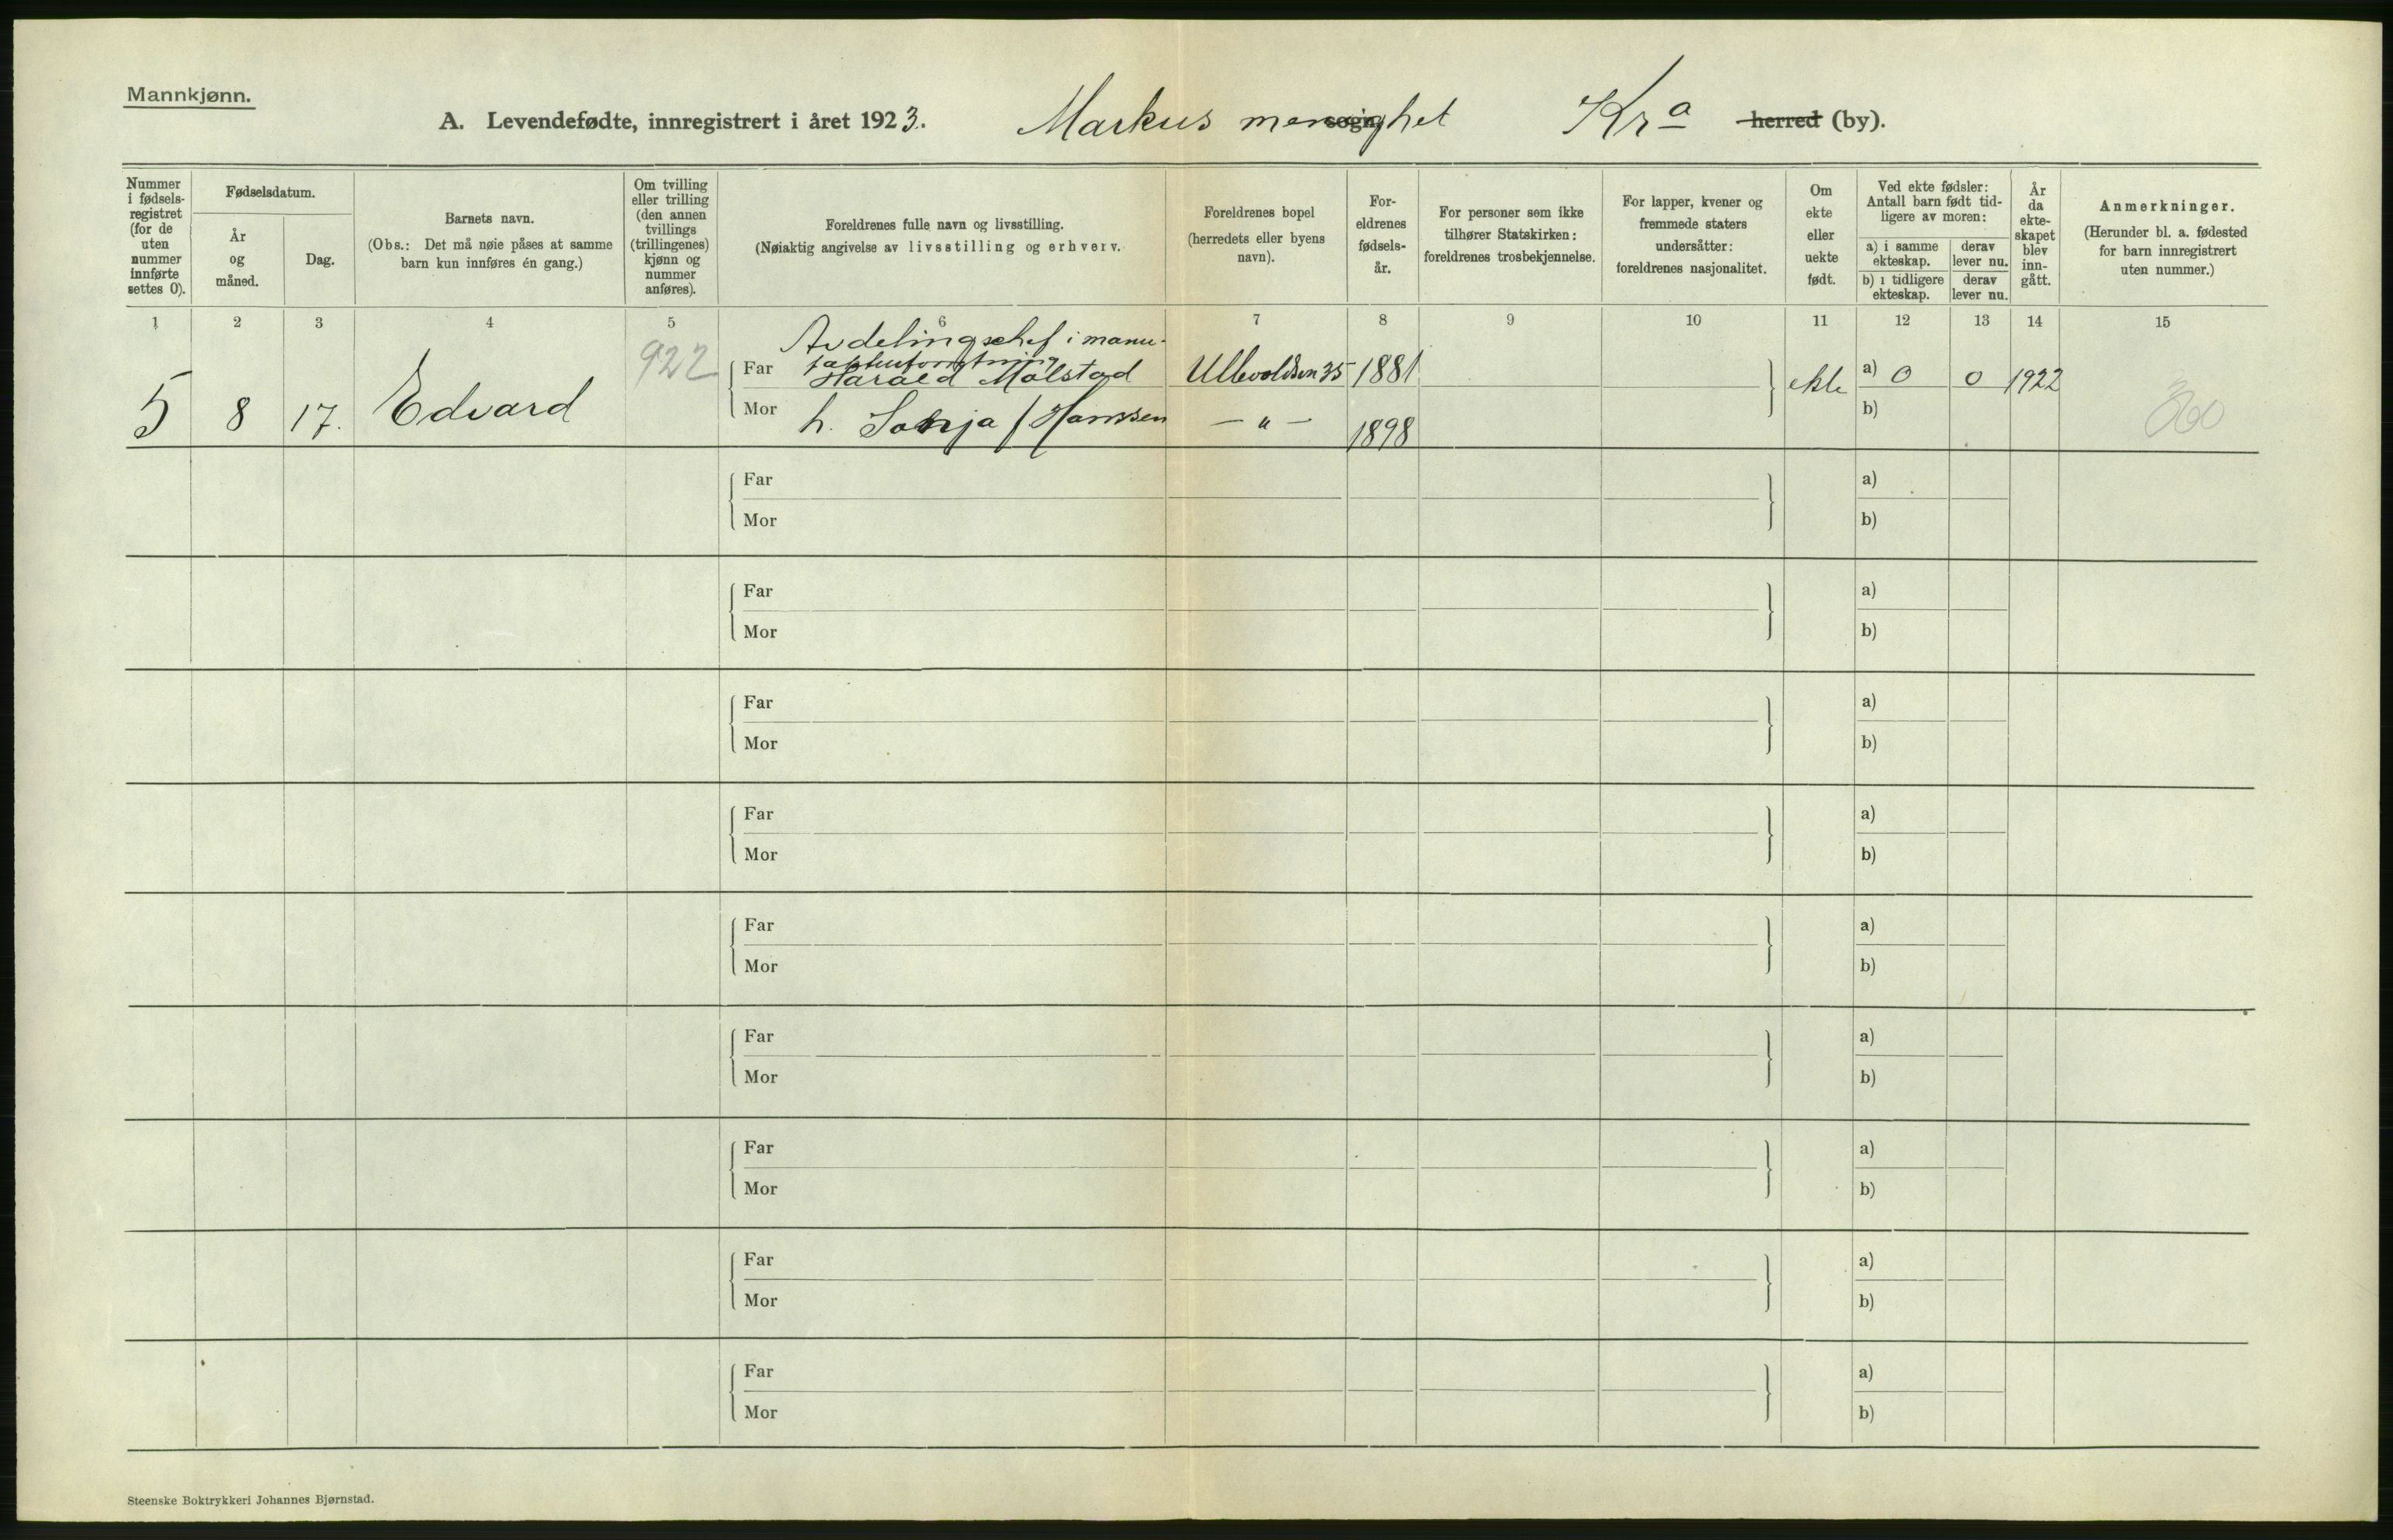 Mannkjønn.
A. Levendefødte, innregistrert i året 1923. Markus menighet sogn, Kra herred (by).
Nummer i fødsels-registret (for de uten nummer innførte settes 0).
Fødselsdatum.
År og måned.
Dag.
Barnets navn.
(Obs.: Det må nøie påses at samme barn kun innføres én gang.)
Om tvilling eller trilling (den annen tvillings (trillingenes) kjønn og nummer anføres).
Foreldrenes fulle navn og livsstilling.
(Nøiaktig angivelse av livsstilling og erhverv.
Foreldrenes bopel (herredets eller byens navn).
For-eldrenes fødsels-år.
For personer som ikke tilhører Statskirken: foreldrenes trosbekjennelse.
For lapper, kvener og fremmede staters undersåtter: foreldrenes nasjonalitet.
Om ekte eller uekte født.
Ved ekte fødsler: Antall barn født tid-ligere av moren:
a) i samme ekteskap.
derav lever nu.
b) i tidligere ekteskap.
derav lever nu.
År da ekte-skapet blev inn-gått.
Anmerkninger.
(Herunder bl. a. fødested for barn innregistrert uten nummer.)
1 2 3 4 5 6 7 8 9 10 11 12 13 14 15
922 Avdelingschef i manu-
Far Harald Molstad Ullevoldsvn 35 1881 ekte a) 0 0 1922
5 8 17. Edvard Mor h. Sonja f Hanssen — " — 1898 b)
Far a)
Mor b)
Far a)
Mor b)
Far a)
Mor b)
Far a)
Mor b)
Far a)
Mor b)
Far a)
Mor b)
Far a)
Mor b)
Far a)
Mor b)
Far a)
Mor b)
Steenske Boktrykkeri Johannes Bjørnstad.